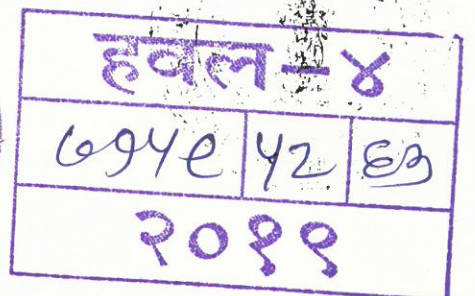 हवल-४
७१५९ ५२ ६३
२०१९